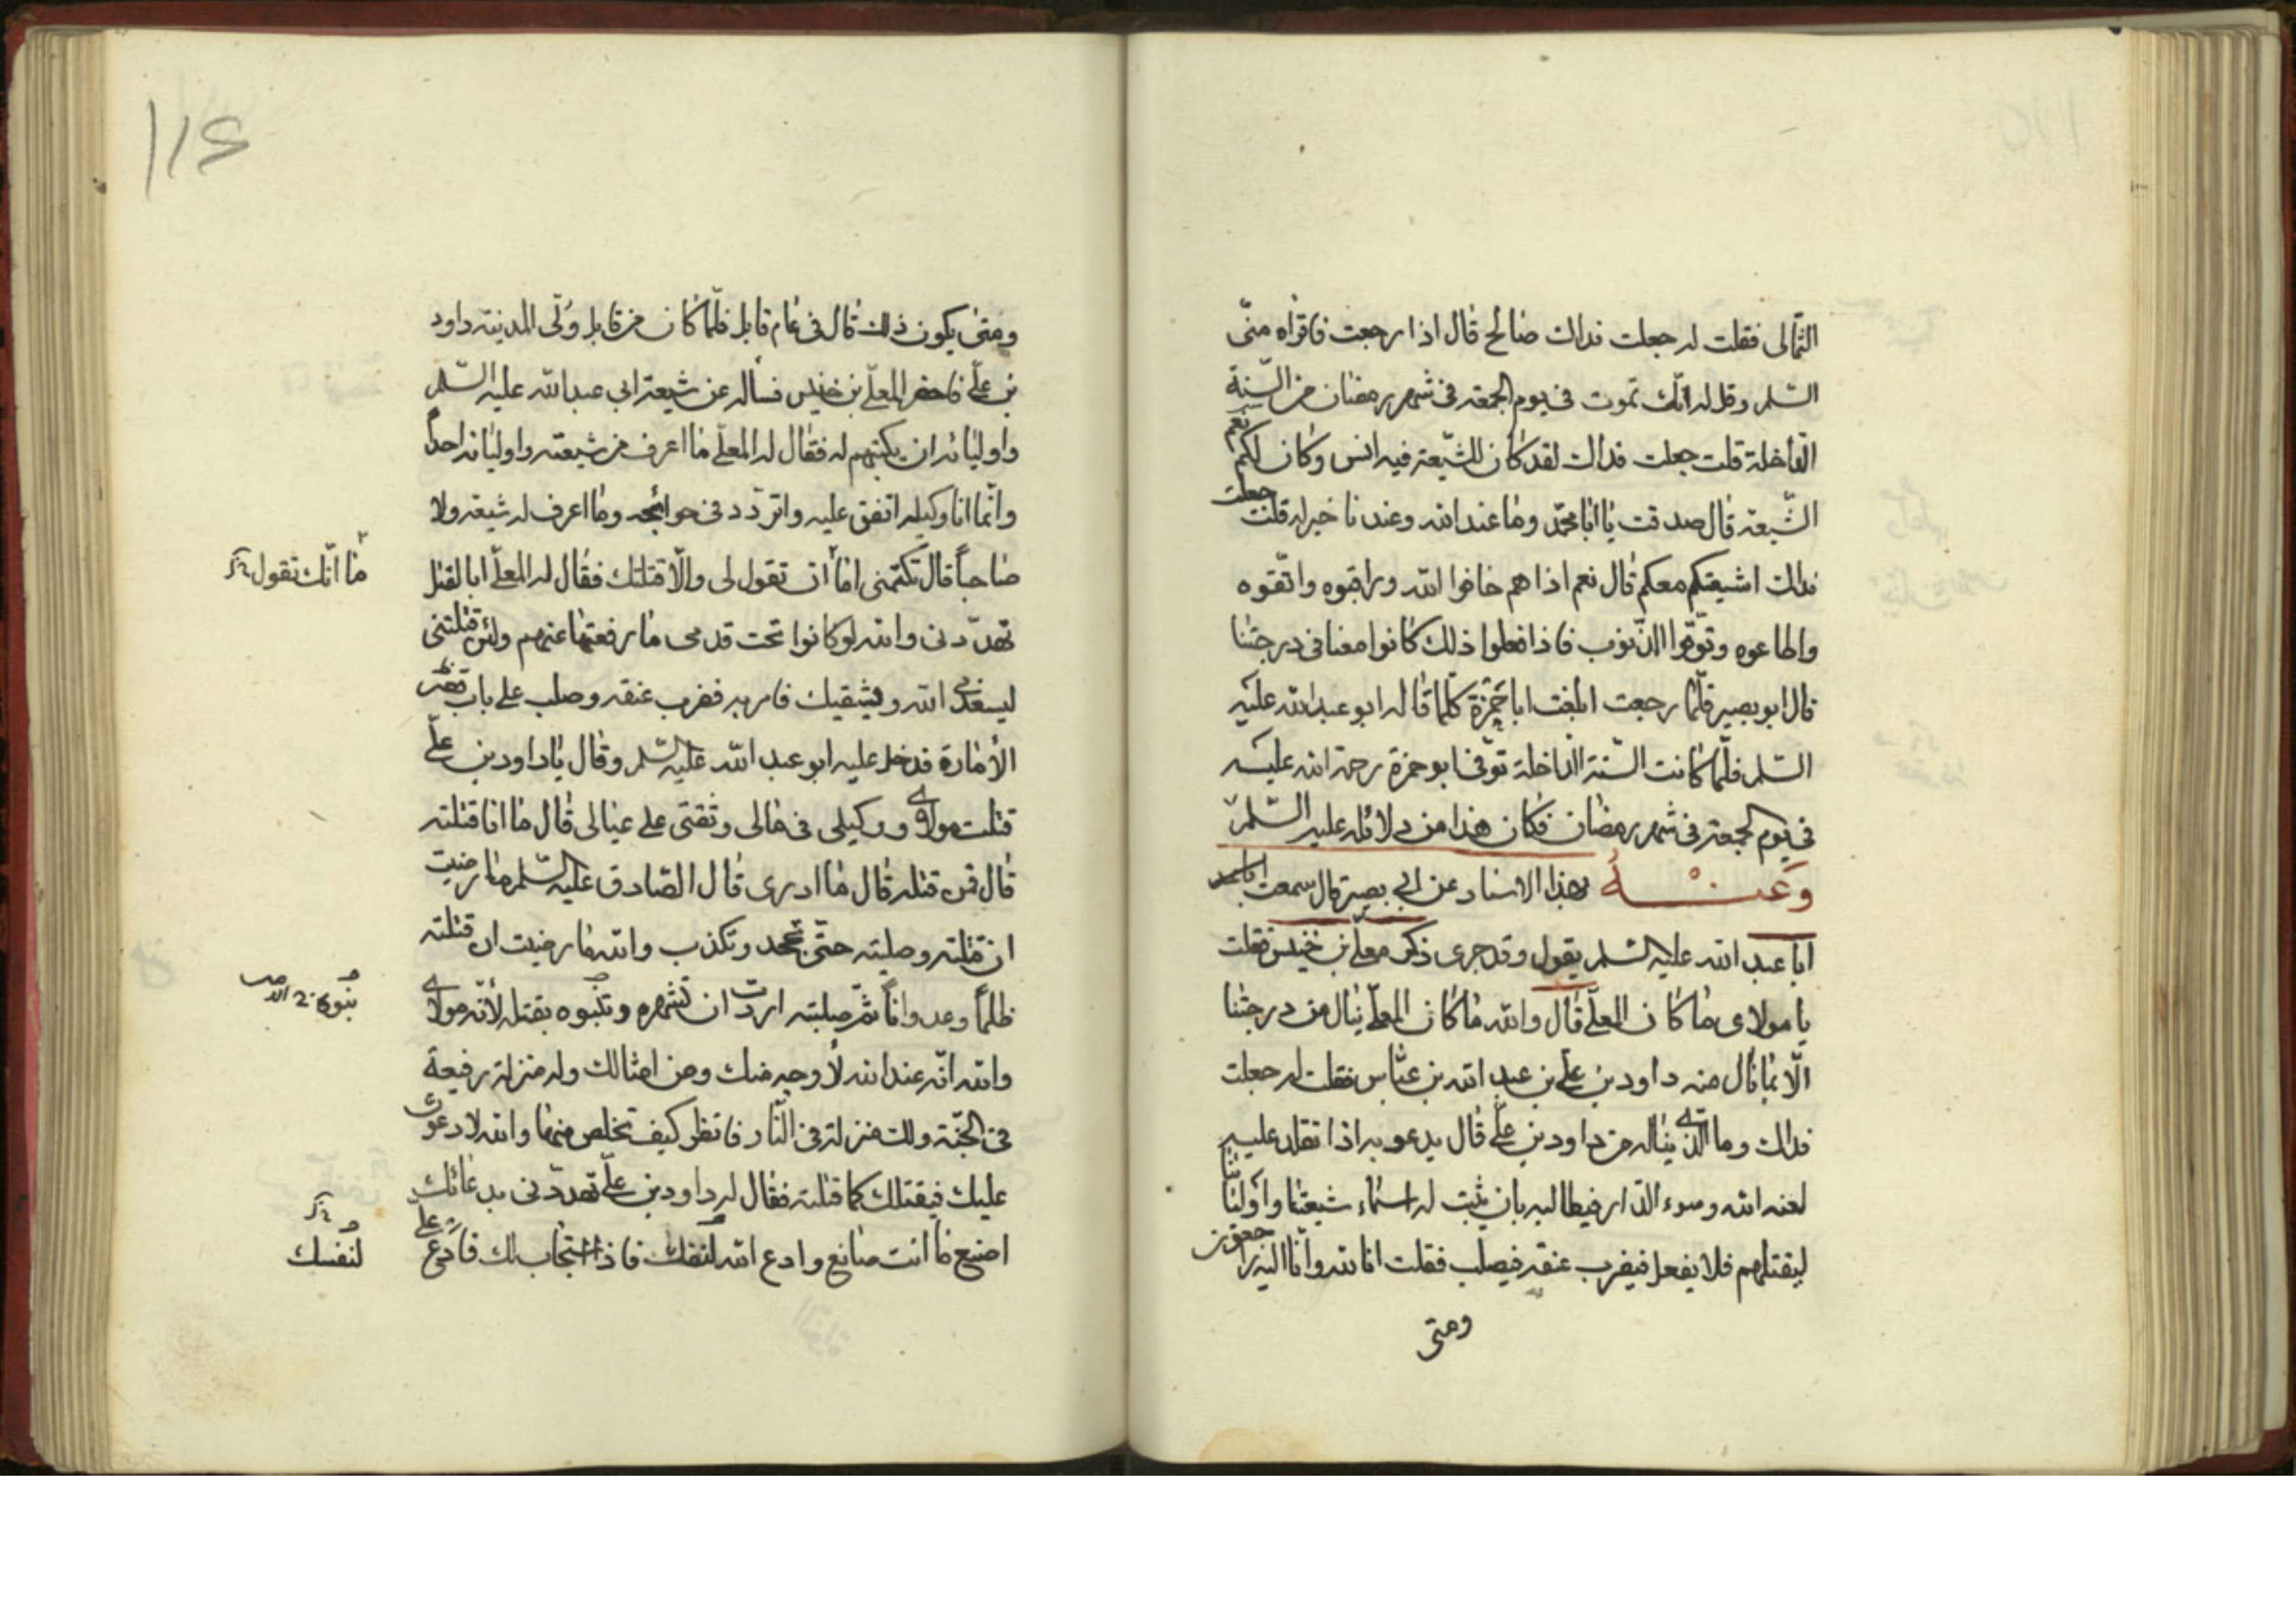 الثمالى فقلت له جعلت فداك صالح قال اذا رجعت فاقراه منّى
السّلم وقل له انّك تموت فى يوم الجمعة فى شهر رمضان من السّنة
الدّاخلة قلت جعلت فداك لقد كان للشّيعة فيه انس وكان لكم نعم
الشّيعة قال صدقت يا ابا محمّد وما عند الله وعندنا خير له قلت جعلت
فداك اشيعتكم معكم قال نعم اذا هم خافوا الله وراقبوه واتّقوه
واطاعوه وتوّقوا الذّنوب فاذا فعلوا ذلك كانوا معنا فى درجتنا
قال ابو بصير فلّما رجعت ابلغت ابا حمزة كلما قال له ابو عبد الله عليه
السّلم فلّما كانت السّنة الدّاخلة توّفى ابو حمزة رحمة الله عليه
فى يوم الجمعة فى شهر رمضان فكان هذا من دلائله عليه السّلم
وعنه بهذا الاسناد عن ابى بصير قال سمعت
ابا عبد الله عليه السّلم يقول وقد جرى ذكر معلّى بن خنيس فقلت
يا مولاى ما كان المعلّى قال والله ما كان المعلّى ينال من درجتنا
الّا بما نال منه داود بن علّى بن عبد الله بن عبّاس فقلت له جعلت
فداك وما الّذى يناله من داود بن علّى قال يدعو به اذا تقلد عليه
لعنه الله وسوء الدّار فيطالبه بان يثبت له اسماء شيعتنا واوليائنا
ليقتلهم فلا يفعل فيضرب عنقه فيصلب فقلت انا لله وانّا اليه راجعون
ومتى
١١٤
ومتى يكون ذلك قال فى عام قابل فلّما كان من قابل ولّى المدينة داود
بن علّى فاحضر المعلّى بن خنيس فسأله عن شيعة ابى عبد الله عليه السّلم
واوليائه ان يكتبهم له فقال له المعلّى ما اعرف من شيعته واوليائه احداً
وانّما انا وكيله اتفق عليه واتردّد فى حوائجه وما اعرف له شيعة ولا
صاحباً قال تكتمنى اما ان تقول لى والّا قتلتك فقال له المعلّى ابالقتل
ما انّك تقول
تهدّدنى والله لو كانوا تحت قدمى ما رفعتها عنهم ولئن قتلتنى
ليسعدنى الله ويشقيك فامر به فضرب عنقه وصلب على باب قصر
الأمارة فدخل عليه ابو عبد الله عليه السّلم وقال يا داود بن علّى
قتلت مولاى ووكيلى فى مالى وثقتى على عيالى قال ما انا قتلته
قال فمن قتله قال ما ادرى قال الصّادق عليه السّلم ما رضيت
ان قتلته وصلبته حتّى تجحد وتكذب والله ما رضيت ان قتلته
ظلماً وعدواناً ثمّ صلبته اردت ان تشهره وتنبوه بقتله لأنّه مولاى
والله انّه عند الله لأوجه منك ومن امثالك وله منزلة رفيعة
فى الجنّة ولك منزلة فى النّار فانظر كيف تخلص منها والله لادعون
عليك فيقتلك كما قتلته فقال له داود بن علّى تهدّدنى بدعائك
اصنع ما انت صانع وادع الله لنفسك فاذا استجاب لك فادع علّى
لنفسك